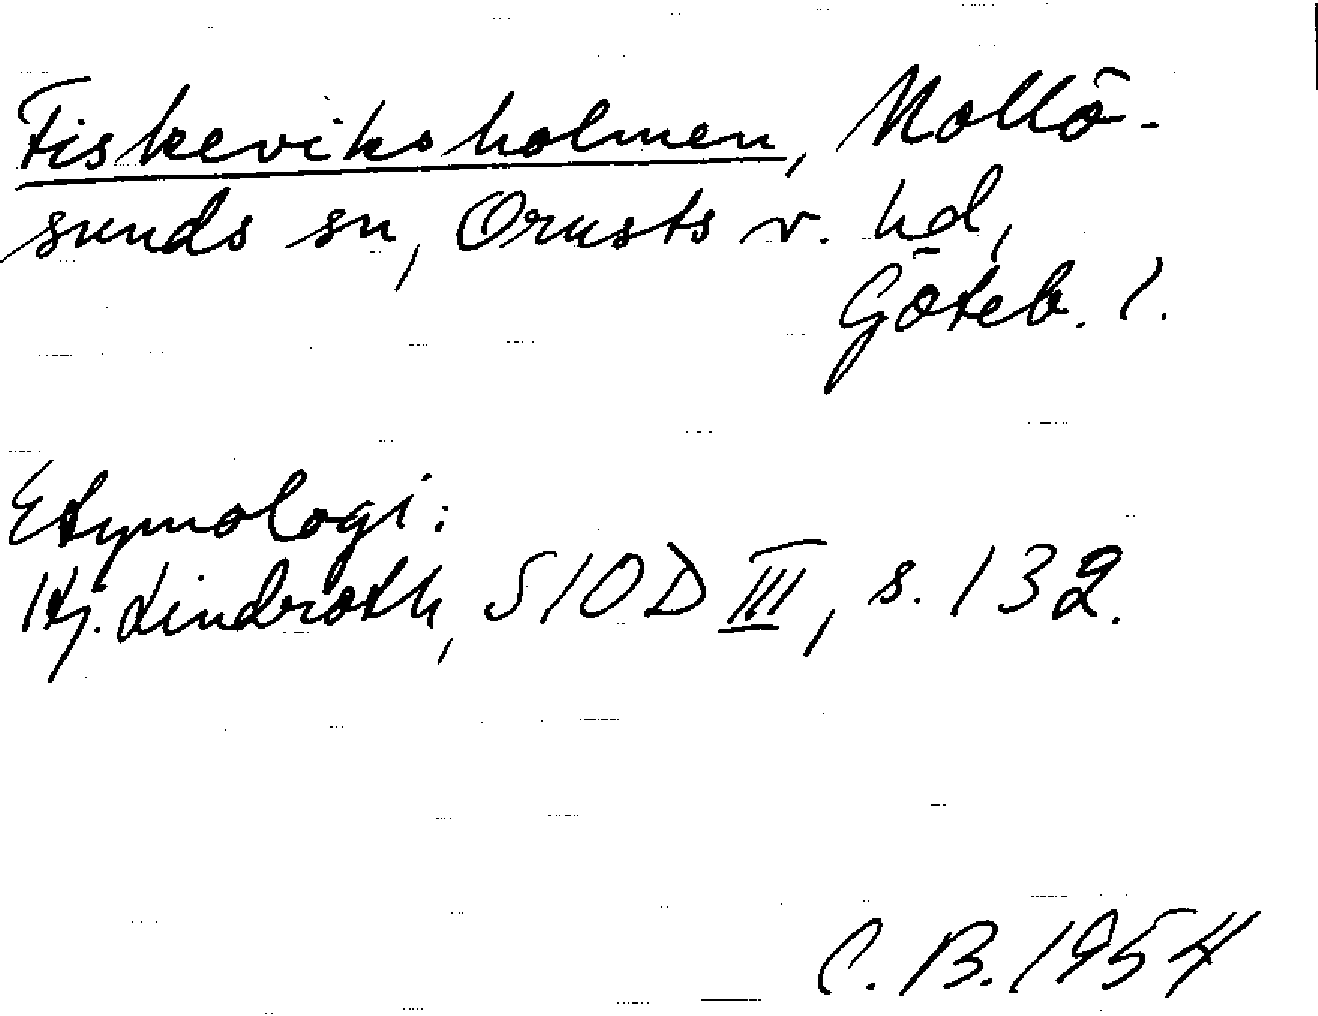 Fiskeviksholmen, Mollö-
sunds sn, Orusts v. hd,
Göteb. l.
Etymologi:
Hj. Lindroth, SIOD III, s. 132.
C. B. 1954